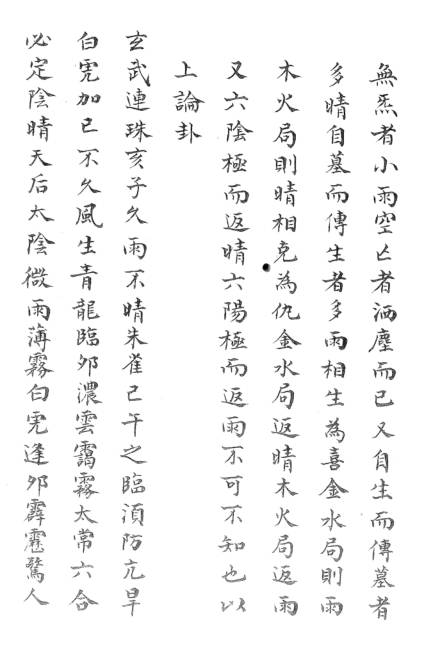 無炁者小雨空亡者洒塵而已又自生而傳墓者
多晴自墓而傳生者多雨相生為喜金水局則雨
木火局則晴相克為仇金水局返晴木火局返雨
又六陰極而返晴六陽極而返雨不可不知也以
上論卦
玄武連珠亥子久雨不晴朱雀已午之臨須防亢旱
白虎加巳不久風生青龍臨夘濃雲靄霧太常六合
必定陰晴天后太陰微雨薄霧白虎逢夘霹靂驚人